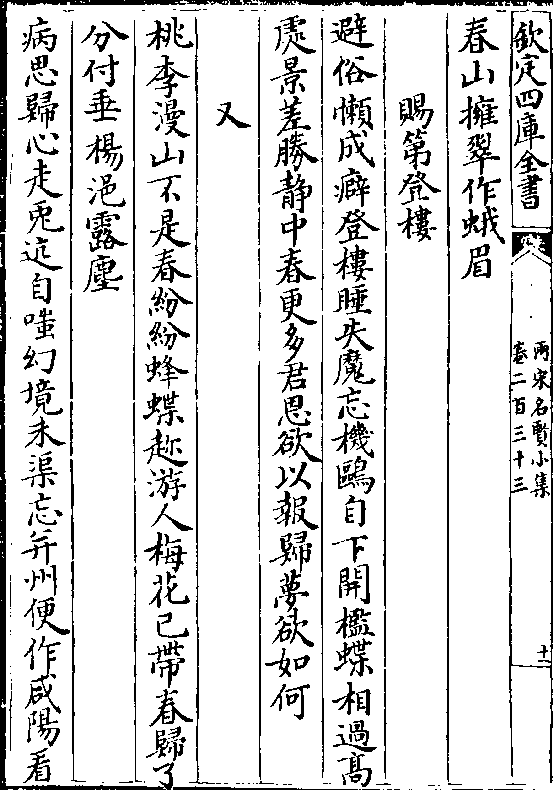 欽定四庫全書
兩宋名賢小集
卷二百三十三
十一
春山擁翠作蛾眉
賜第登樓
避俗懶成癖登樓睡失魔忘機鷗自下開檻蝶相過高
處景差勝静中春更多君恩欲以報歸夢欲如何
又
桃李漫山不是春紛紛蜂蝶趂游人梅花已帶春歸了
分付垂楊浥露塵
病思歸心走兎迒自嗤幻境未渠忘并州便作咸陽看